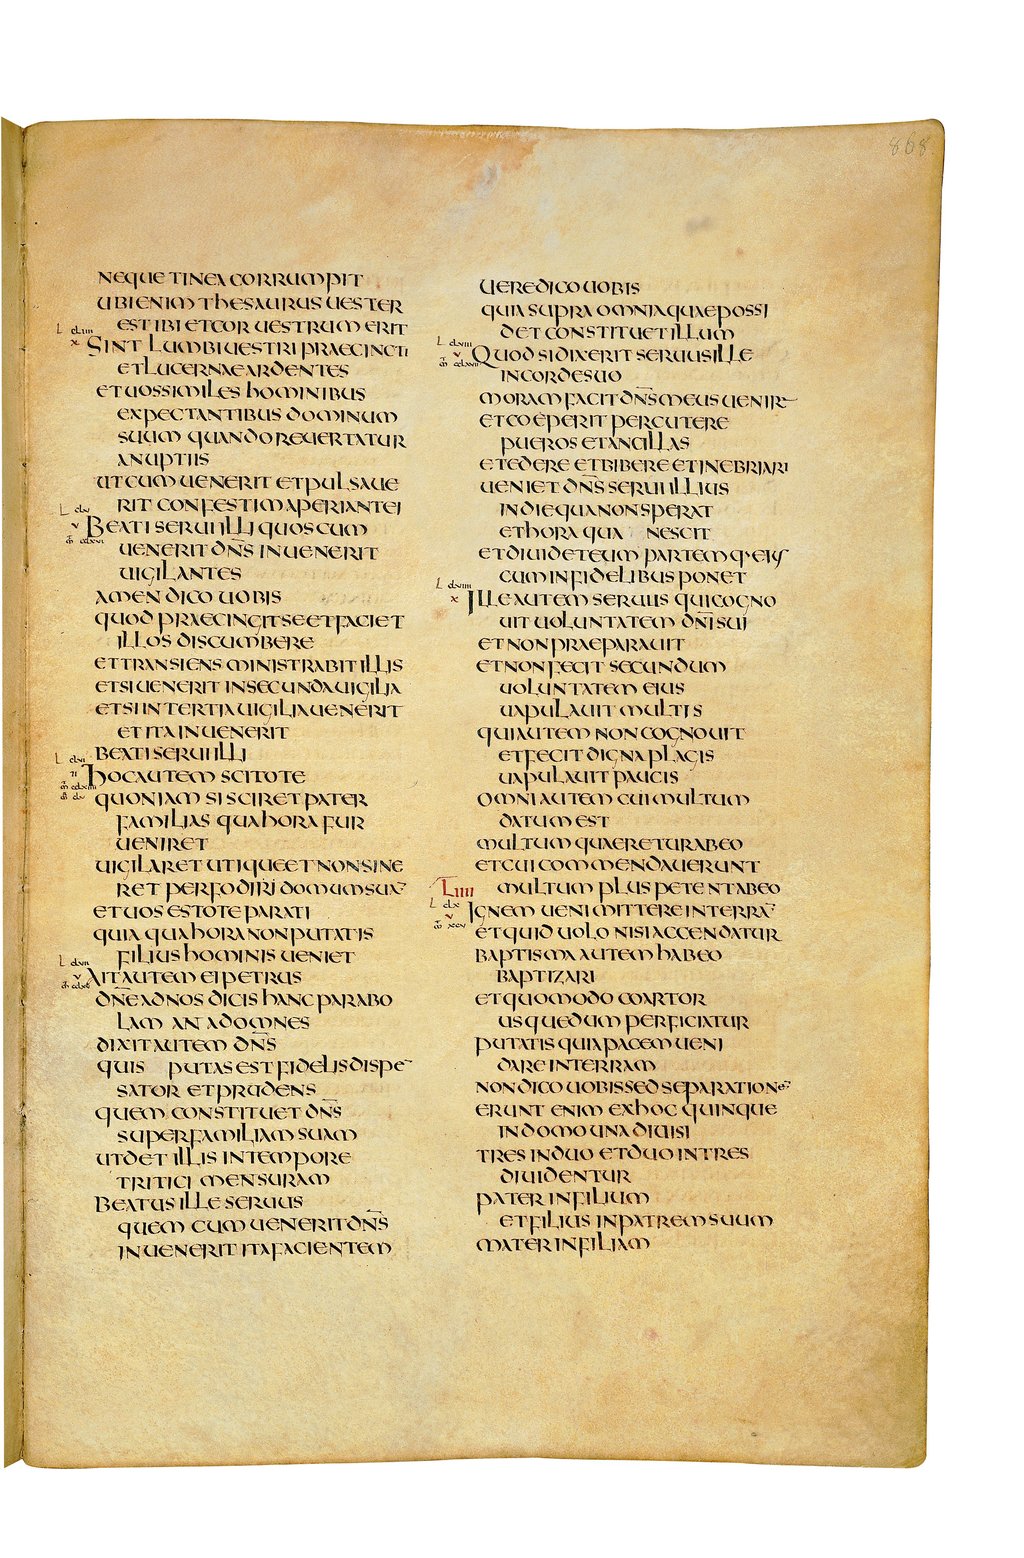 868
NEQUE TINEA CORRUMPIT
UBI ENIM THESAURUS UESTER
EST IBI ET COR UESTRUM ERIT
SINT LUMBI UESTRI PRAECINCTI
ET LUCERNAE ARDENTES
ET UOS SIMILES HOMINIBUS
EXPECTANTIBUS DOMINUM
SUUM QUANDO REUERTATUR
A NUPTIIS
UT CUM UENERIT ET PULSAUE
RIT CONFESTIM APERIANT EI
BEATI SERUI ILLI QUOS CUM
UENERIT DN̅S INUENERIT
UIGILANTES
AMEN DICO UOBIS
QUOD PRAECINGIT SE ET FACIET
ILLOS DISCUMBERE
ET TRANSIENS MINISTRABIT ILLIS
ET SI UENERIT IN SECUNDA UIGILIA
ET SI IN TERTIA UIGILIA UENERIT
ET ITA INUENERIT
BEATI SERUI ILLI
HOC AUTEM SCITOTE
QUONIAM SI SCIRET PATER
FAMILIAS QUA HORA FUR
UENIRET
UIGILARET UTIQUE ET NON SINE
RET PERFODIRI DOMUM SUA̅
ET UOS ESTOTE PARATI
QUIA QUA HORA NON PUTATIS
FILIUS HOMINIS UENIET
AIT AUTEM EI PETRUS
DN̅E AD NOS DICIS HANC PARABO
LAM AN AD OMNES
DIXIT AUTEM DN̅S
QUIS PUTAS EST FIDELIS DISPE̅
SATOR ET PRUDENS
QUEM CONSTITUET DN̅S
SUPER FAMILIAM SUAM
UT DET ILLIS IN TEMPORE
TRITICI MENSURAM
BEATUS ILLE SERUUS
QUEM CUM UENERIT DN̅S
INUENERIT ITA FACIENTEM
UERE DICO UOBIS
QUIA SUPRA OMNIA QUAE POSSI
DET CONSTITUET ILLUM
QUOD SI DIXERIT SERUUS ILLE
IN CORDE SUO
MORAM FACIT DN̅S MEUS UENIRE
ET COEPERIT PERCUTERE
PUEROS ET ANCILLAS
ET EDERE ET BIBERE ET INEBRIARI
UENIET DN̅S SERUI ILLIUS
IN DIE QUA NON SPERAT
ET HORA QUA NESCIT
ET DIUIDET EUM PARTEMQ· EIUS
CUM INFIDELIBUS PONET
ILLE AUTEM SERUUS QUI COGNO
UIT UOLUNTATEM DN̅I SUI
ET NON PRAEPARAUIT
ET NON FECIT SECUNDUM
UOLUNTATEM EIUS
UAPULAUIT MULTIS
QUI AUTEM NON COGNOUIT
ET FECIT DIGNA PLAGIS
UAPULAUIT PAUCIS
OMNI AUTEM CUI MULTUM
DATUM EST
MULTUM QUAERETUR AB EO
ET CUI COMMENDAUERUNT
LIIII MULTUM PLUS PETENT AB EO
IGNEM UENI MITTERE IN TERRA̅
ET QUID UOLO NISI ACCENDATUR
BAPTISMA AUTEM HABEO
BAPTIZARI
ET QUOMODO COARTOR
USQUEDUM PERFICIATUR
PUTATIS QUIA PACEM UENI
DARE IN TERRAM
NON DICO UOBIS SED SEPARATIONE̅
ERUNT ENIM EX HOC QUINQUE
IN DOMO UNA DIUISI
TRES IN DUO ET DUO IN TRES
DIUIDENTUR
PATER IN FILIUM
ET FILIUS IN PATREM SUUM
MATER IN FILIAM